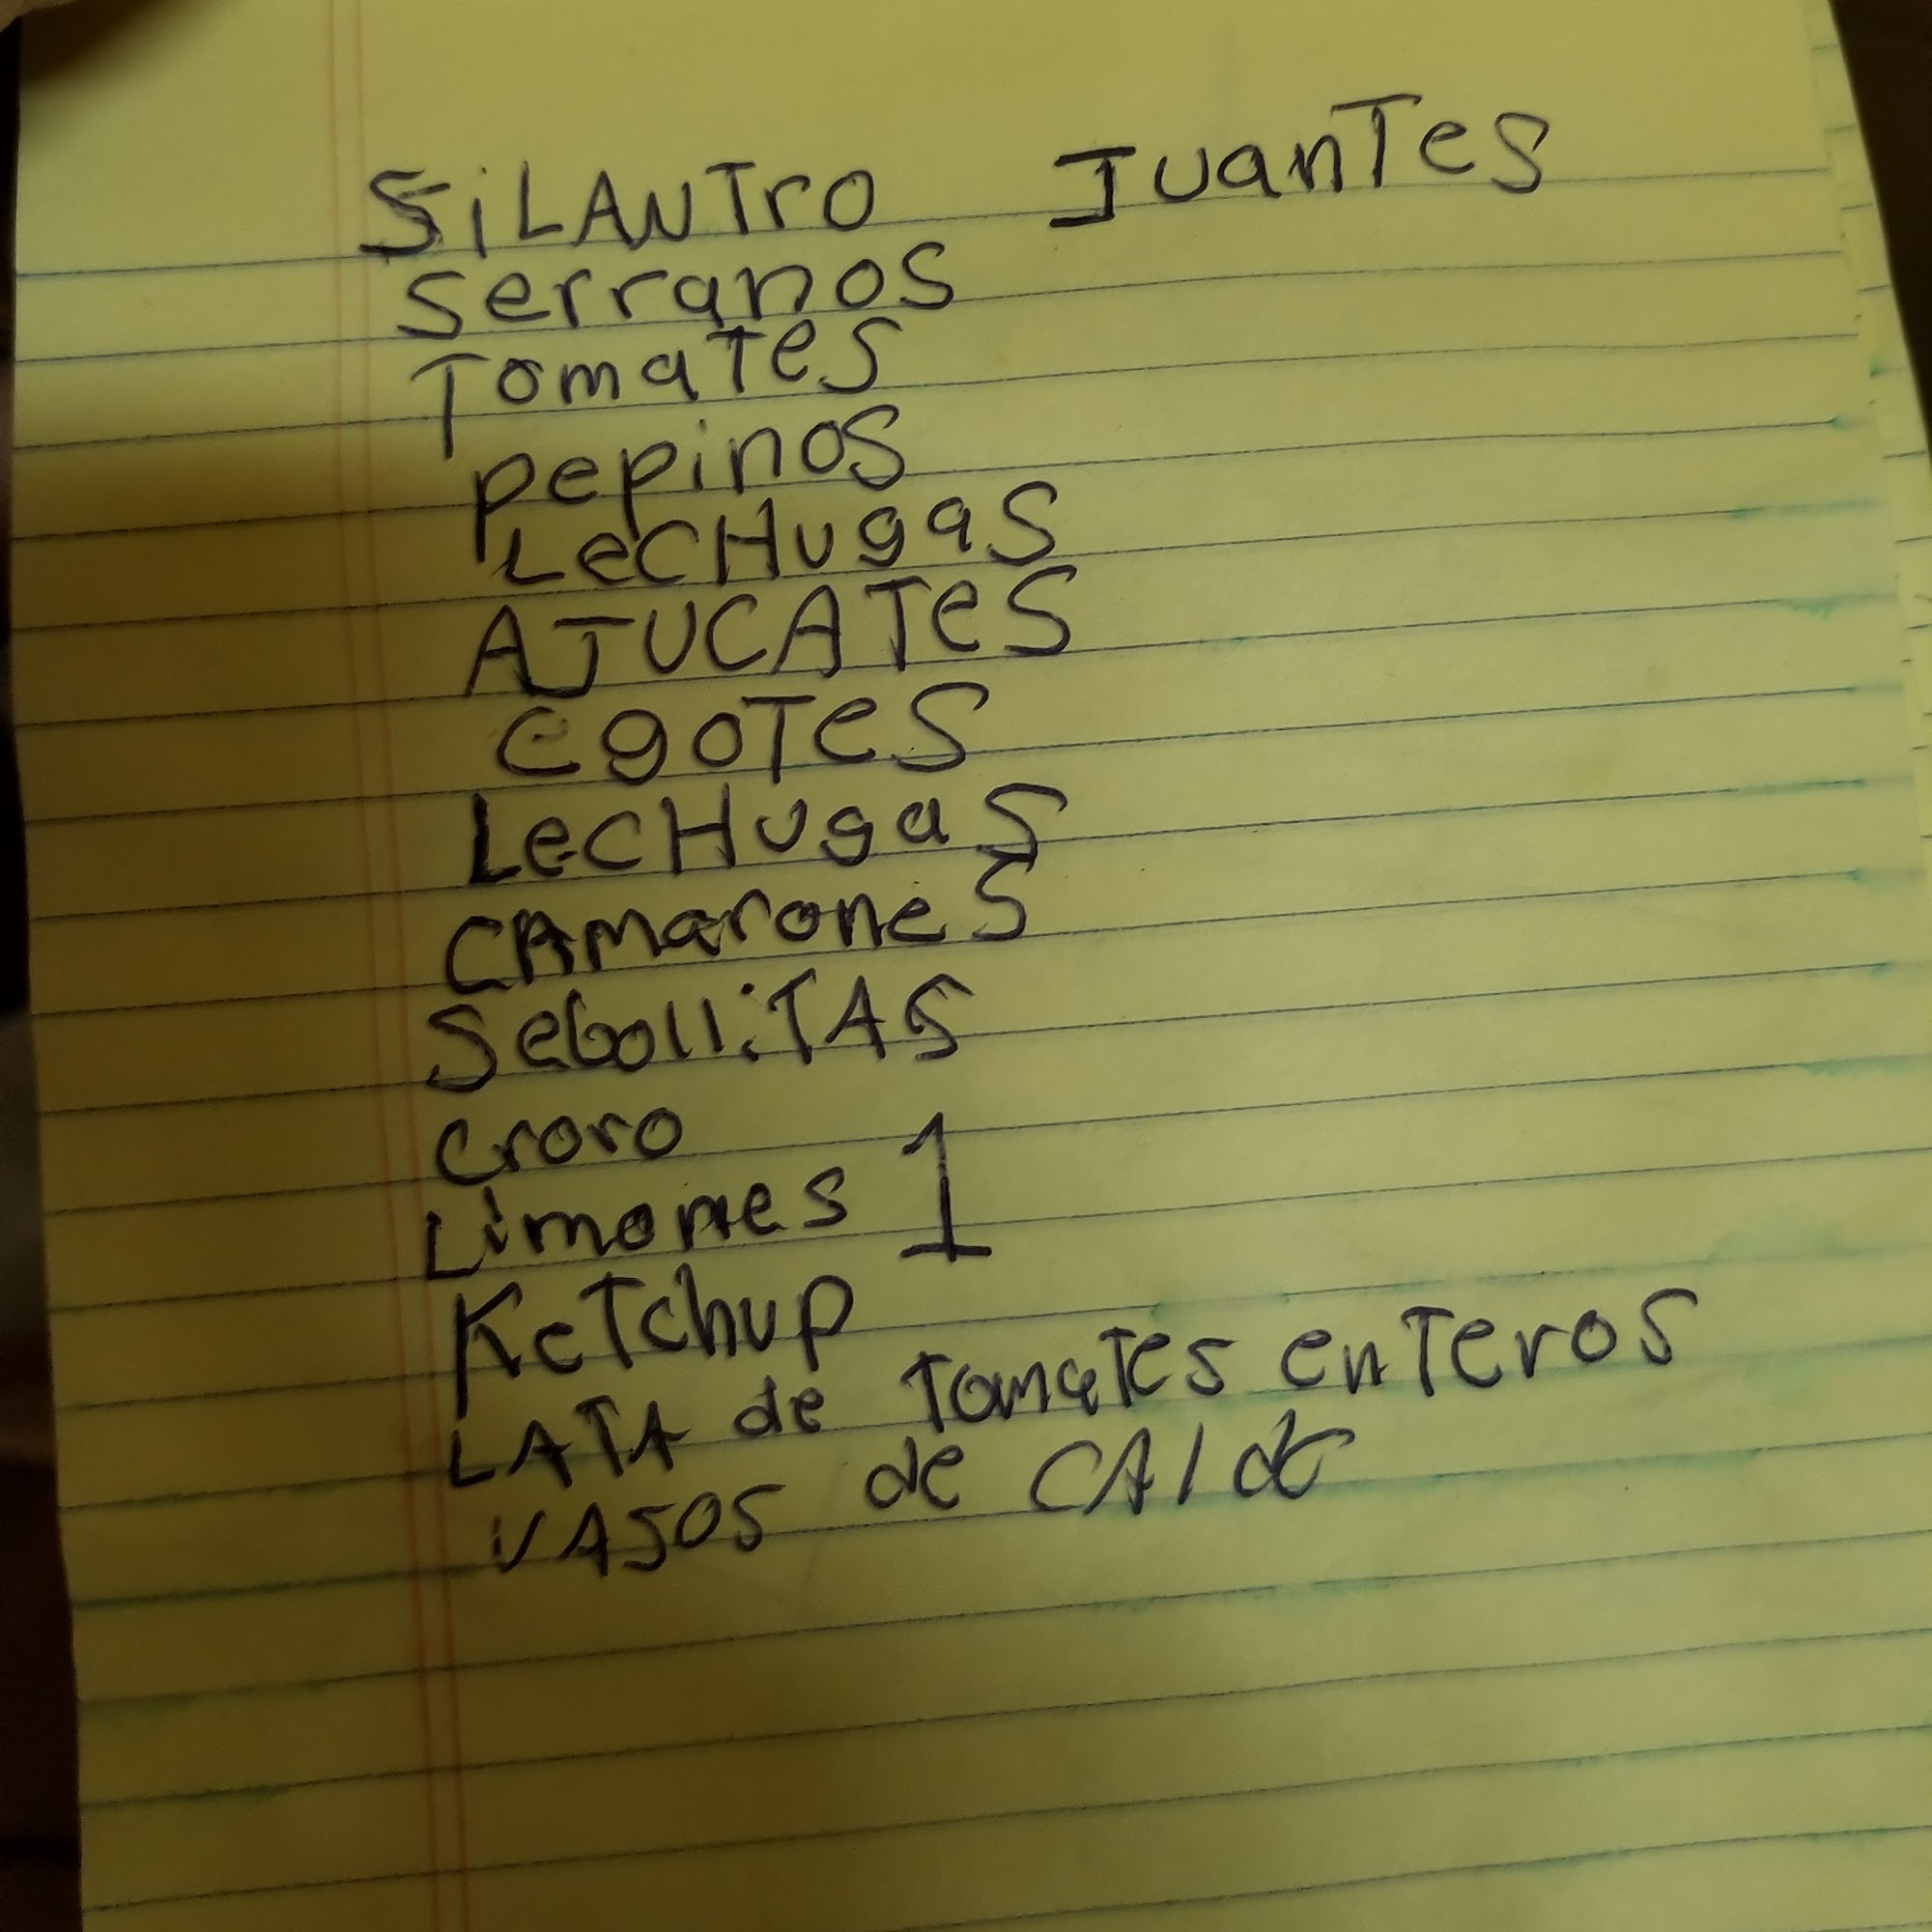 SiLANTrO JuanTes
serranos
TomaTes
pepinos
LecHugas
AJUCATes
egoTes
LecHugas
CAmarones
SebolliTAS
croro
Limones 1
KeTchup
LATA de TomaTes enTeros
VASOS de CAldo